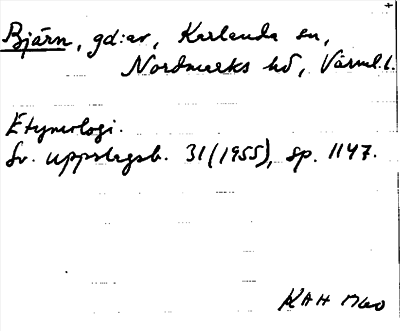 Bjärn, gd:ar, Karlanda sn,
Nordmarks hd, Värml. l.
Etymologi.
Sv. uppslagsb. 31 (1955), sp. 1147.
KAH